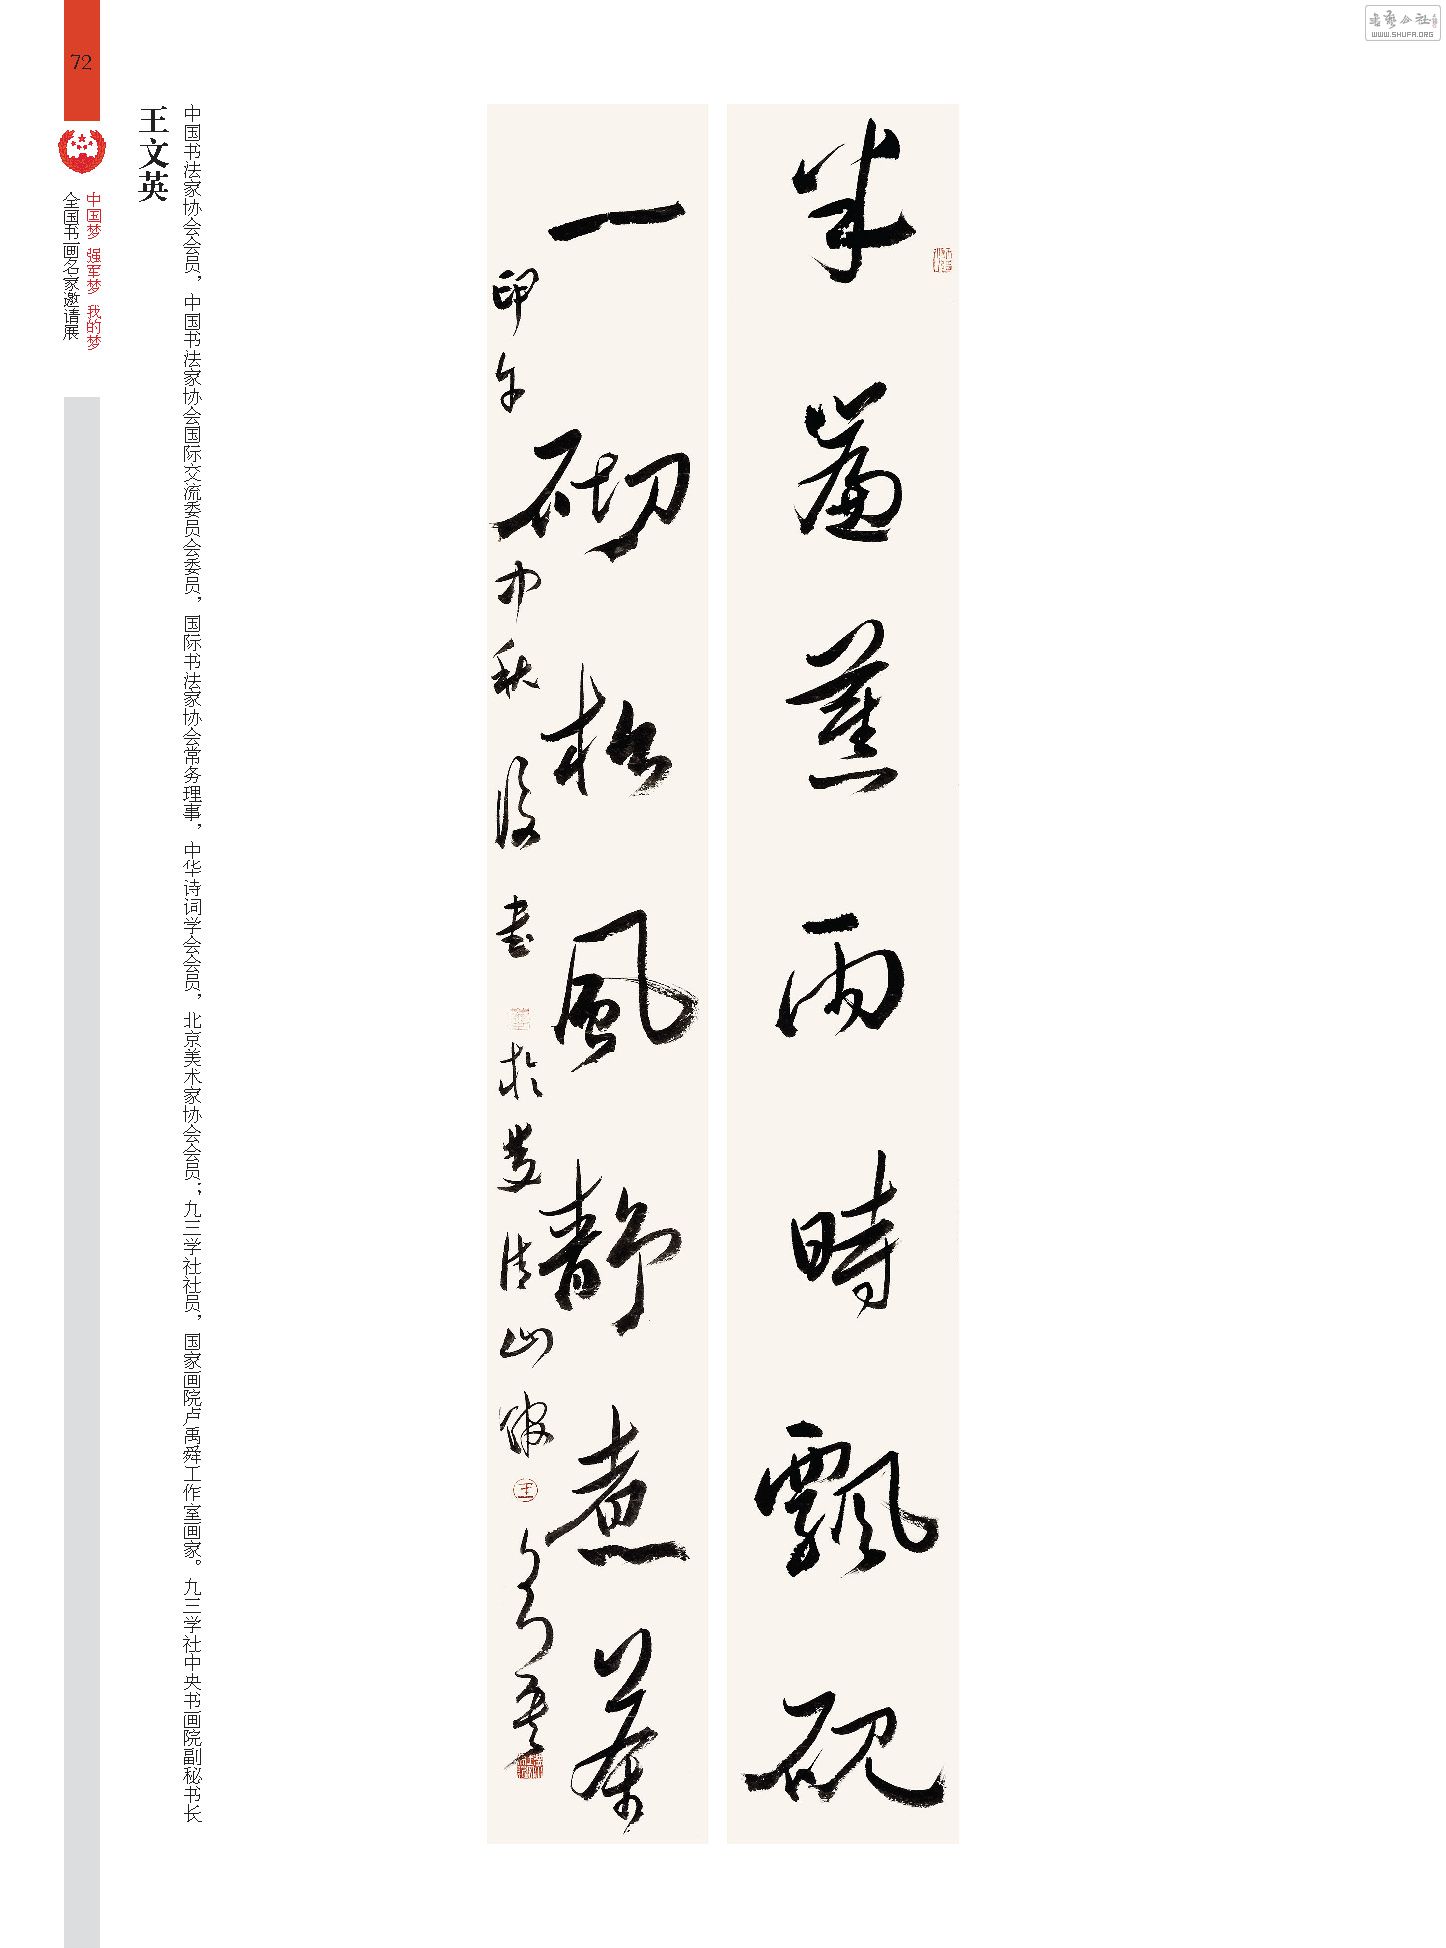 72
中国梦 强军梦 我的梦
全国书画名家邀请展
王文英
中国书法家协会会员，中国书法家协会国际交流委员会委员，国际书法家协会常务理事，中华诗词学会会员，北京美术家协会会员；九三学社社员，国家画院卢禹舜工作室画家。九三学社中央书画院副秘书长
半蕉雨時飄硯
一砌松風靜煮茶
秋後書
於
山
WWW.SHUFA.ORG